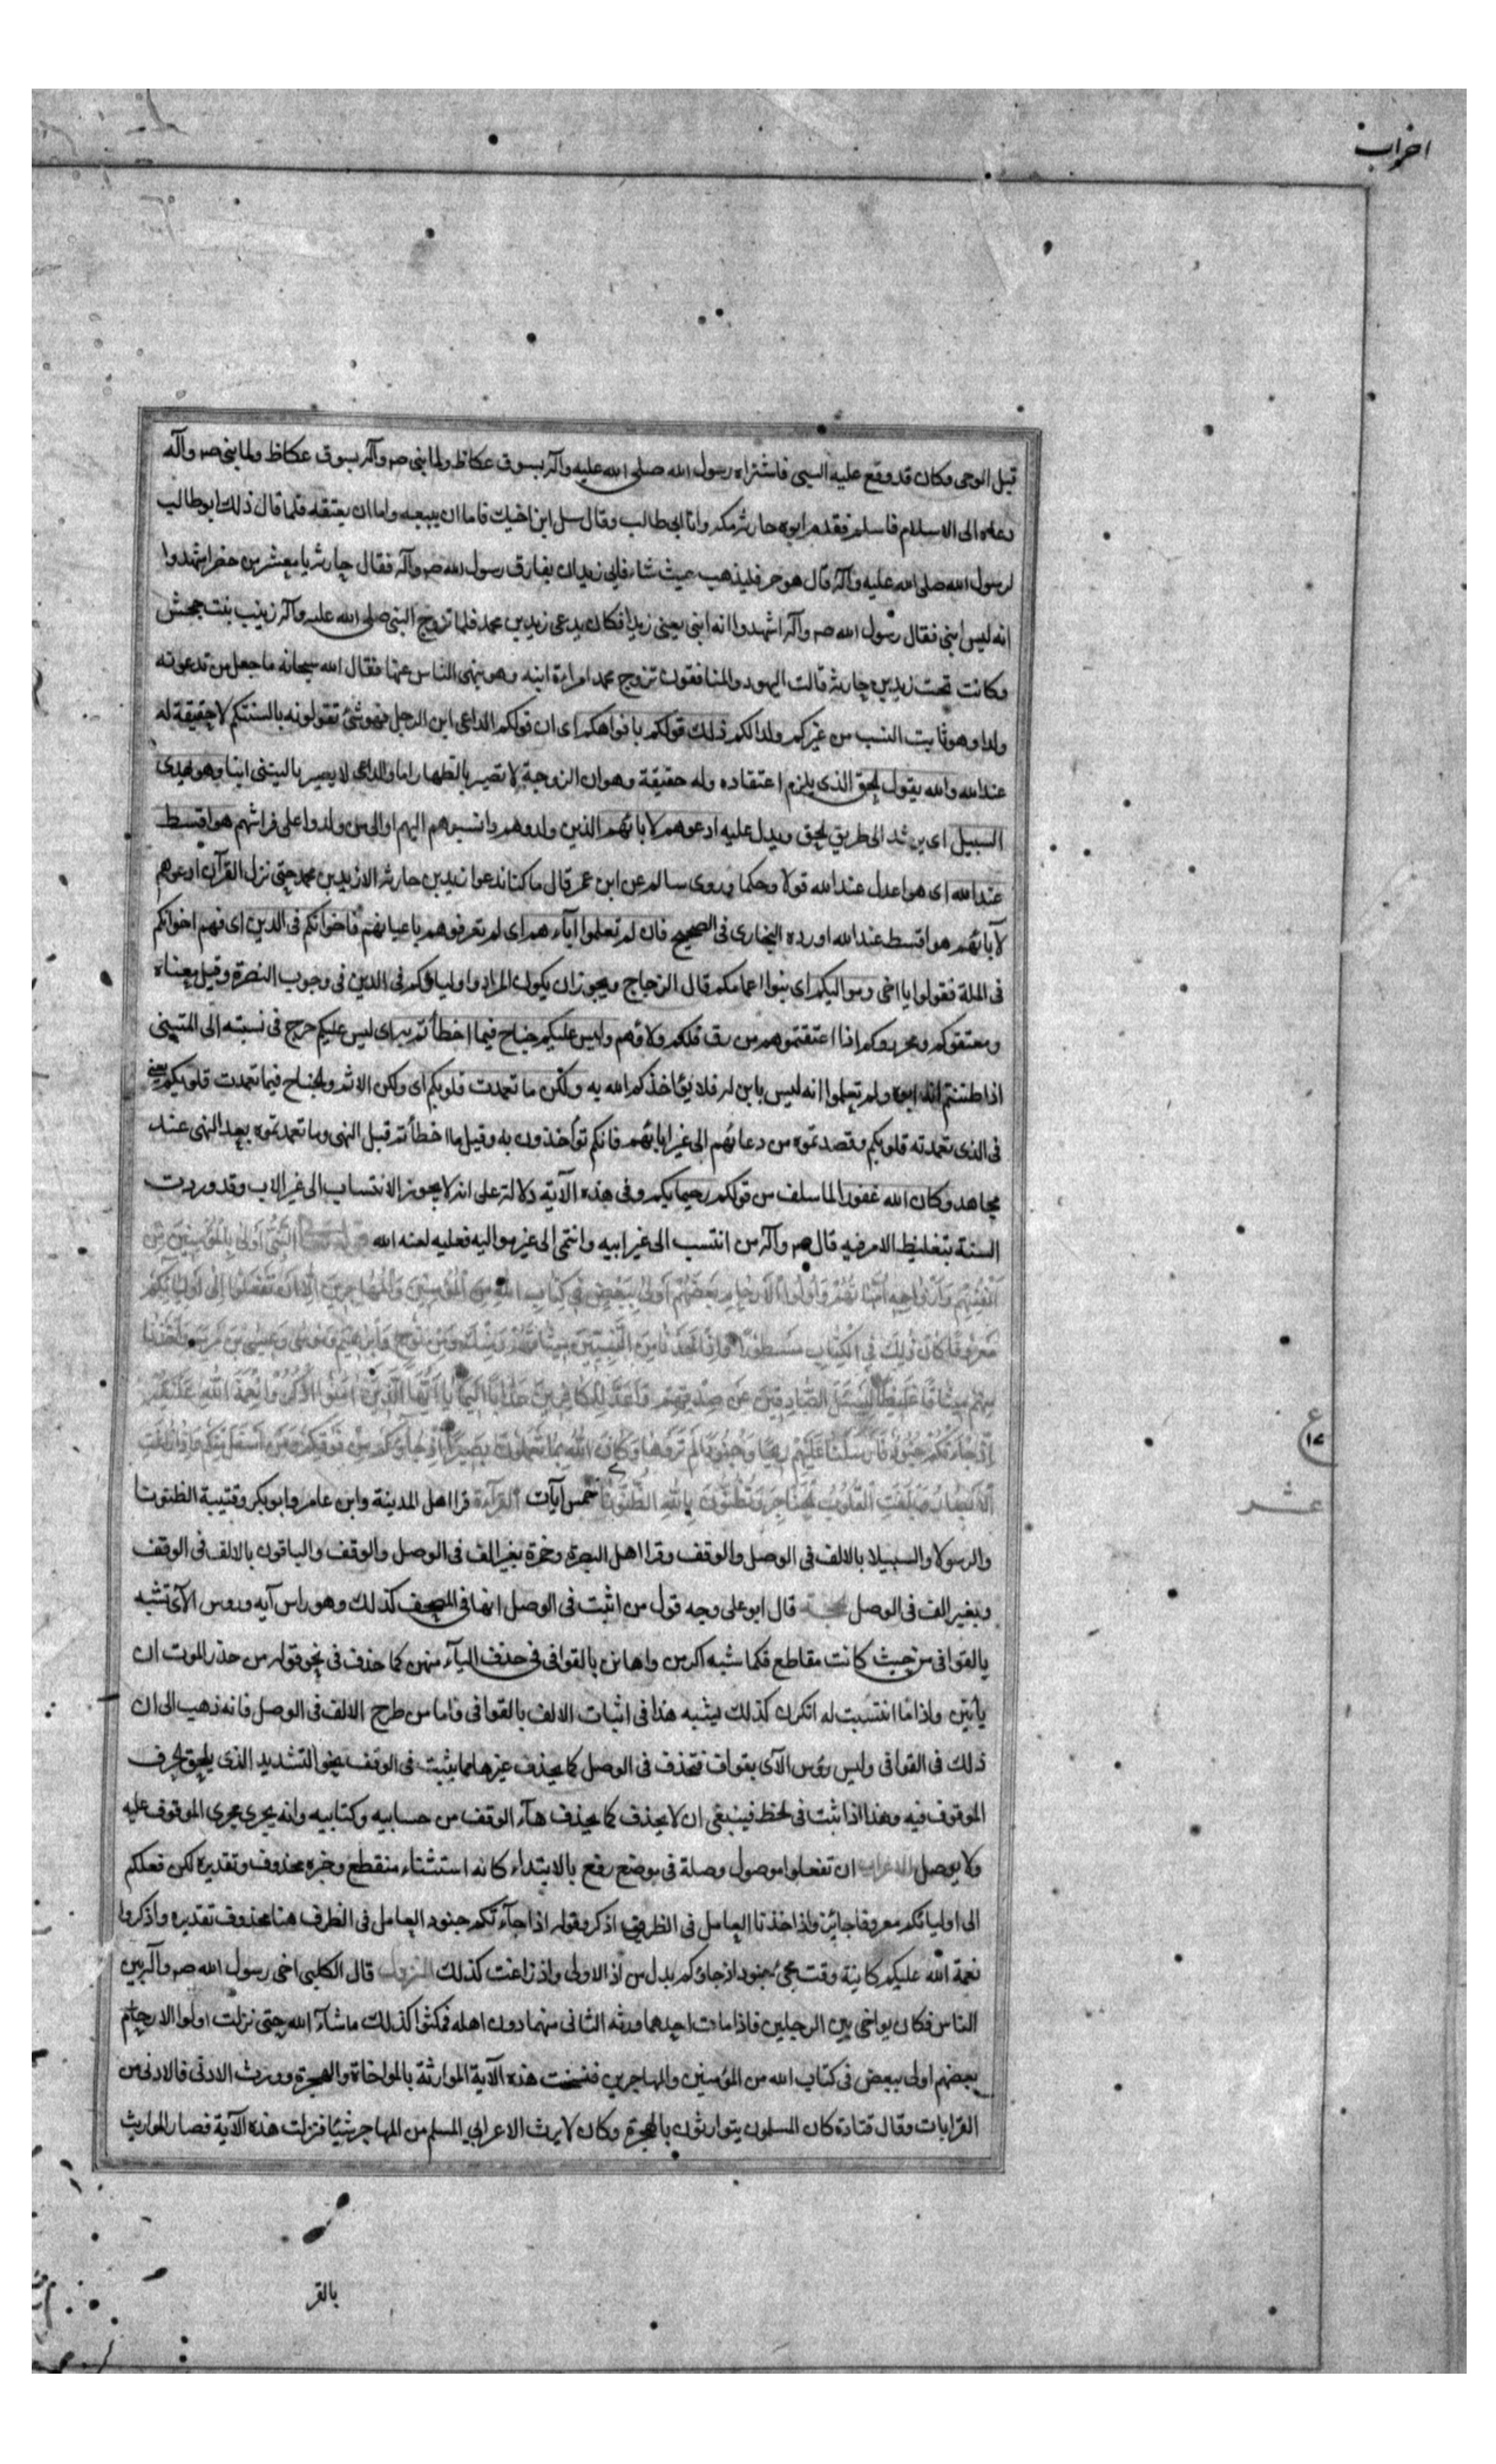 احزاب
قبل الوحی وکان قد وقع علیه السبی فاشتراه رسول الله صلی الله علیه وآله بسوق عکاظ ولما نبی صم وآله بسوق عکاظ ولما نبی صم وآله
دعاه الی الاسلام فاسلم فقدم ابوه حارثة مکة واتا ابی طالب وقال سل ابن اخیك فاما ان یبیعه واما ان یعتقه فلما قال ذلك ابوطالب
لرسول الله صلی الله علیه وآله قال هو حر فلیذهب حیث شاء فابی زید ان یفارق رسول الله صم وآله فقال حارثة یا معشر من حضر اشهدوا
انه لیس ابنی فقال رسول الله صم وآله اشهدوا انه ابنی یعنی زیدا فکان یدعی زید بن محمد فلما تزوج النبی صلی الله علیه وآله زینب بنت جحش
وکانت تحت زید بن حارثة قالت الیهود والمنافقون تزوج محمد امراءة ابنه وهو ینهی الناس عنها فقال الله سبحانه ما جعل من تدعونه
ولدا وهو ثابت النسب من غیرکم ولدا لکم ذلك قولکم بافواهکم ای ان قولکم الداعی ابن الرجل فهو شئ تقولونه بالسنتکم لا حقیقة له
عند الله والله یقول الحق الذی یلزم اعتقاده وله حقیقة وهو ان الزوجة لا تصیر بالظهار اما والداعی لا یصیر بالتبنی ابنا وهو یهدی
السبیل ای یرشد الی طریق الحق ویدل علیه ادعوهم لابائهم الذین ولدوهم وانسبوهم الیهم او الی من ولدوا علی فراشهم هو اقسط
عند الله ای هو اعدل عند الله قولا وحکما وروی سالم عن ابن عمر قال ما کنا ندعوا زید بن حارثة الا زید بن محمد حتی نزل القرآن ادعوهم
لآبائهم هو اقسط عند الله اورده البخاری فی الصحیح فان لم تعلموا آباءهم ای لم تعرفوهم باعیانهم فاخوانکم فی الدین ای فهم اخوانکم
فی الملة فقولوا یا اخی وموالیکم ای بنوا اعمامکم قال الزجاج ویجوز ان یکون المراد واولیاؤکم فی الدین فی وجوب النصرة وقیل معناه
ومعتقوکم ومحرروکم اذا اعتقتموهم من رق فلکم ولاؤهم ولیس علیکم جناح فیما اخطأتم به ای لیس علیکم حرج فی نسبته الی المتبنی
اذا ظننتم انه ابوه ولم تعلموا انه لیس بابن له فلا یؤاخذکم الله به ولکن ما تعمدت قلوبکم ای ولکن الاثم والجناح فیما تعمدت قلوبکم یعنی
فی الذی تعمدته قلوبکم وقصدتموه من دعائهم الی غیر ابائهم فانکم تؤاخذون به وقیل ما اخطأتم قبل النهی وما تعمدتموه بعد النهی عند
مجاهد وکان الله غفورا لما سلف من قولکم رحیما بکم وفی هذه الآیة دلالة علی انه لا یجوز الانتساب الی غیر الاب وقد وردت
السنة بتغلیظ الامر فیه قال صم وآله من انتسب الی غیر ابیه وانتمی الی غیر موالیه فعلیه لعنه الله النَّبِیُّ أَوْلیٰ بِالْمُؤْمِنِینَ مِنْ
أَنْفُسِهِمْ وَأَزْوَاجُهُ أُمَّهَاتُهُمْ وَأُولُوا الْأَرْحَامِ بَعْضُهُمْ أَوْلیٰ بِبَعْضٍ فِی کِتَابِ اللَّهِ مِنَ الْمُؤْمِنِینَ وَالْمُهَاجِرِینَ إِلَّا أَنْ تَفْعَلُوا إِلیٰ أَوْلِیَائِکُمْ
مَعْرُوفًا کَانَ ذٰلِكَ فِی الْکِتَابِ مَسْطُورًا وَإِذْ أَخَذْنَا مِنَ النَّبِیِّینَ مِیثَاقَهُمْ وَمِنْكَ وَمِنْ نُوحٍ وَإِبْرَاهِیمَ وَمُوسیٰ وَعِیسَی بْنِ مَرْیَمَ وَأَخَذْنَا
مِنْهُمْ مِیثَاقًا غَلِیظًا لِیَسْئَلَ الصَّادِقِینَ عَنْ صِدْقِهِمْ وَأَعَدَّ لِلْکَافِرِینَ عَذَابًا أَلِیمًا یَا أَیُّهَا الَّذِینَ آمَنُوا اذْکُرُوا نِعْمَةَ اللَّهِ عَلَیْکُمْ
إِذْ جَاءَتْکُمْ جُنُودٌ فَأَرْسَلْنَا عَلَیْهِمْ رِیحًا وَجُنُودًا لَمْ تَرَوْهَا وَکَانَ اللَّهُ بِمَا تَعْمَلُونَ بَصِیرًا إِذْ جَاؤُکُمْ مِنْ فَوْقِکُمْ وَمِنْ أَسْفَلَ مِنْکُمْ وَإِذْ زَاغَتِ
الْأَبْصَارُ وَبَلَغَتِ الْقُلُوبُ الْحَنَاجِرَ وَتَظُنُّونَ بِاللَّهِ الظُّنُونَا خمس آیات القراءة قرا اهل المدینة وابن عامر وابوبکر وقتیبة الظنونا
ع
١٧
عشر
والرسولا والسبیلا بالالف فی الوصل والوقف وقرا اهل البصرة وحمزة بغیر الف فی الوصل والوقف والباقون بالالف فی الوقف
وبغیر الف فی الوصل الحجة قال ابوعلی وجه قول من اثبت فی الوصل انها فی المصحف کذلك وهو راس آیه وروس الآی تشبه
بالقوافی من حیث کانت مقاطع فکما شبه اکرمن واهانن بالقوافی فی حذف الیآء منهن کما حذف فی نحو قوله من حذر الموت ان
یأتین واذا ما انتسبت له انکرن کذلك یشبه هذا فی اثبات الالف بالقوافی فاما من طرح الالف فی الوصل فانه ذهب الی ان
ذلك فی القوافی ولیس رؤس الآی بقواف فتحذف فی الوصل کما یحذف غیرها مما یثبت فی الوقف نحو التشدید الذی یلحق الحرف
الموقوف فیه وهذا اذا ثبت فی الخط فینبغی ان لا یحذف کما یحذف هآء الوقف من حسابیه وکتابیه وانه یجری مجری الموقوف علیه
ولا یوصل الاعراب ان تفعلوا موصول وصلة فی موضع رفع بالابتداء کانه استثناء منقطع وخبره محذوف وتقدیره لکن فعلکم
الی اولیائکم معروفا جائز واذ اخذنا العامل فی الظرف اذکر وقوله اذا جآءتکم جنود العامل فی الظرف هنا محذوف تقدیره واذکروا
نعمة الله علیکم کائنة وقت مجئ جنود اذ جاؤکم بدل من اذ الاولی واذ زاغت کذلك النزول قال الکلبی اخی رسول الله صم وآله بین
الناس فکان یواخی بین الرجلین فاذا مات احدهما ورثه الثانی منهما دون اهله فمکثوا کذلك ما شآء الله حتی نزلت اولوا الارحام
بعضهم اولی ببعض فی کتاب الله من المؤمنین والمهاجرین فنسخت هذه الآیة الموارثة بالمواخاة والهجرة وورث الادنی فالادنی من
القرابات وقال قتادة کان المسلمون یتوارثون بالهجرة وکان لا یرث الاعرابی المسلم من المهاجر شیئا فنزلت هذه الآیة فصار المواریث
بالقر